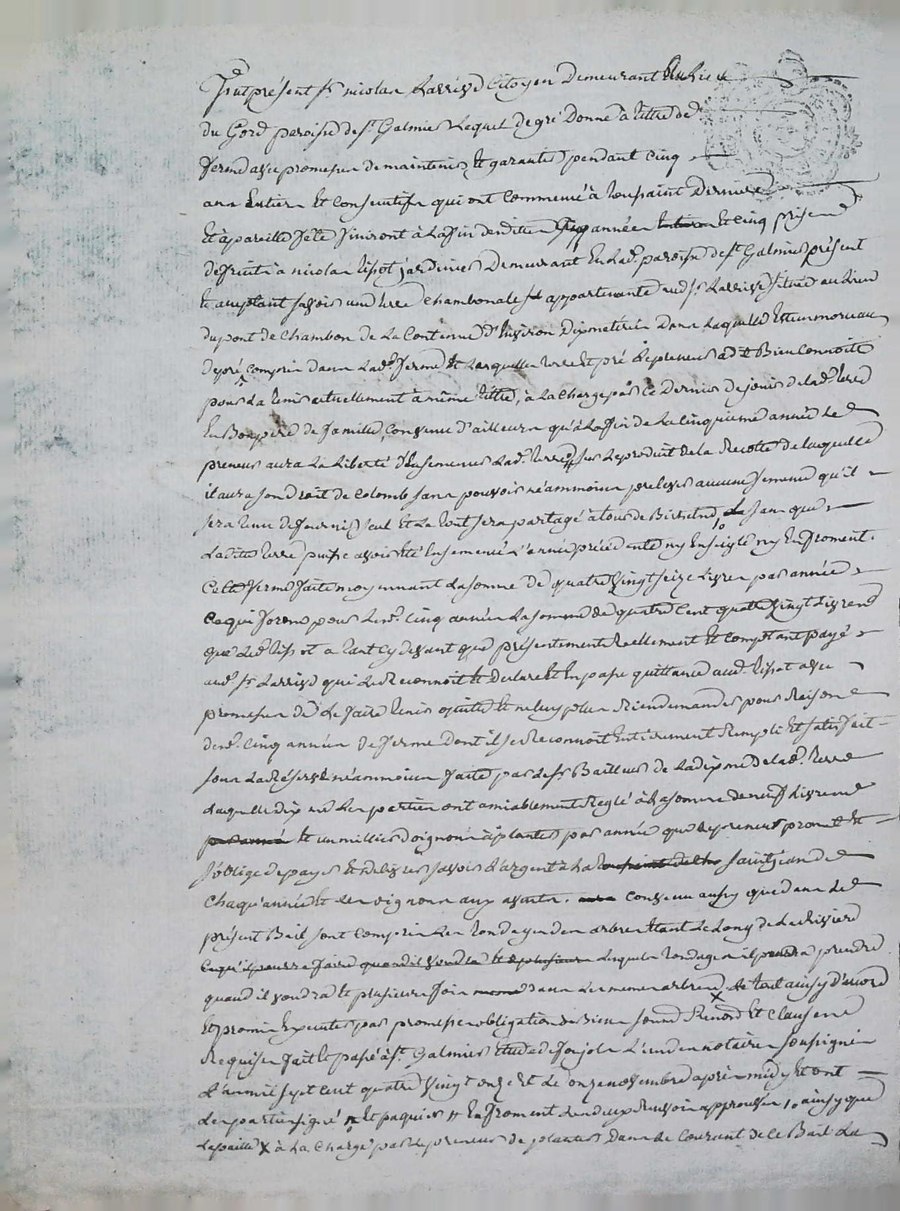 fut présent sr nicolas Larrivé Citoyen Demeurant Au Lieu
du Gord paroisse de st Galmier Lequel De gré Donne à titre de
ferme avec promesse de maintenir Et garantir pendant cinq
ans Entiers Et Consecutifs qui ont Commencé à Toussaint Dernier
Et à pareille fête finiront à La fin desdittes cinq années Et cinq prises
de fruits à nicolas Tissot jardinier Demeurant En Lad. paroisse de st Galmier présent
Et acceptant savoir une terre Chambonale appartenante aud. sr Larrivé située au Lieu
du pont de Chambon de La Contenue D'Environ Dans Laquelle Est un morceau
de pré Compris dans Lad. ferme Et Lesquelles terre Et pré Le preneur a dit Bien Connoitre
pour La tenir actuellement à même tittre, à La Charge par Ce Dernier de jouir de lad. terre
En Bon père de famille, Convenu d'ailleurs qu'à La fin de La Cinquieme année Le
preneur aura La Liberté d'Ensemencer Lad. terre sur Le produit De La Recolte de laquelle
il aura son droit de Colomb sans pouvoir néammoins prelever aucune semence qu'il
sera tenu de fournir seul Et Le tout sera partagé sans que
Laditte terre puisse avoir Eté Ensemencé L'année précédente ny En seigle ny En froment.
Cette ferme faite moyennant La somme De quatre vingt seize Livres par année
Ce qui forme pour Lesd. Cinq années La somme de quatre Cent quatre vingt Livres
que Led. Tissot a tant cy devant que présentement Reellement Et Comptant payé
aud. sr Larrivé qui Le Reconnoit Et declare Et En passe quittance aud. Tissot avec
promesse de Le faire tenir quitte Et ne luy plus Rien demander pour Raison
desd. Cinq années de ferme dont il se Reconnoit Entierement Rempli Et satisfait
sous La Réserve néammoins faite par Le sr Bailleur de La dixme de lad. terre
Laquelle dixme Les parties ont amiablement Reglé à La somme de neuf Livres
par année Et un millier d'oignons à planter par année que Le preneur promet Et
s'oblige de payer Et delivrer savoir L'argent à La saint jean de
Chaqu'année Et Les oignons aux avents. Convenu aussy que dans Le
présent Bail sont Compris Les tondages des arbres Etant Le Long de La Riviere
Ce qu'il pourra faire quand il voudra Et plusieurs Lesquels tondages il pourra prendre
quand il voudra Et plusieurs fois dans Les memes arbres, De tout ainsy d'accord
Et promis Executer par promesse obligation de Biens soumis Renonc Et Clauses
Requises fait Et passé à st Galmier Etude de L'un des notaires soussignés
L'an mil sept Cent quatre vingt onze Et Le onze novembre après midy Et ont
Les parties signé Et paquier En froment Les deux Renvois approuvés ainsy que
La paille X à La Charge par Le preneur de planter Dans Le Courant de Ce Bail La